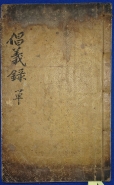 倡義錄 單